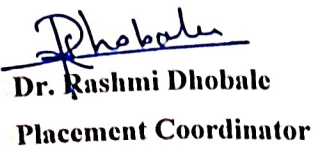 RDhobale
Dr. Rashmi Dhobale
Placement Coordinator